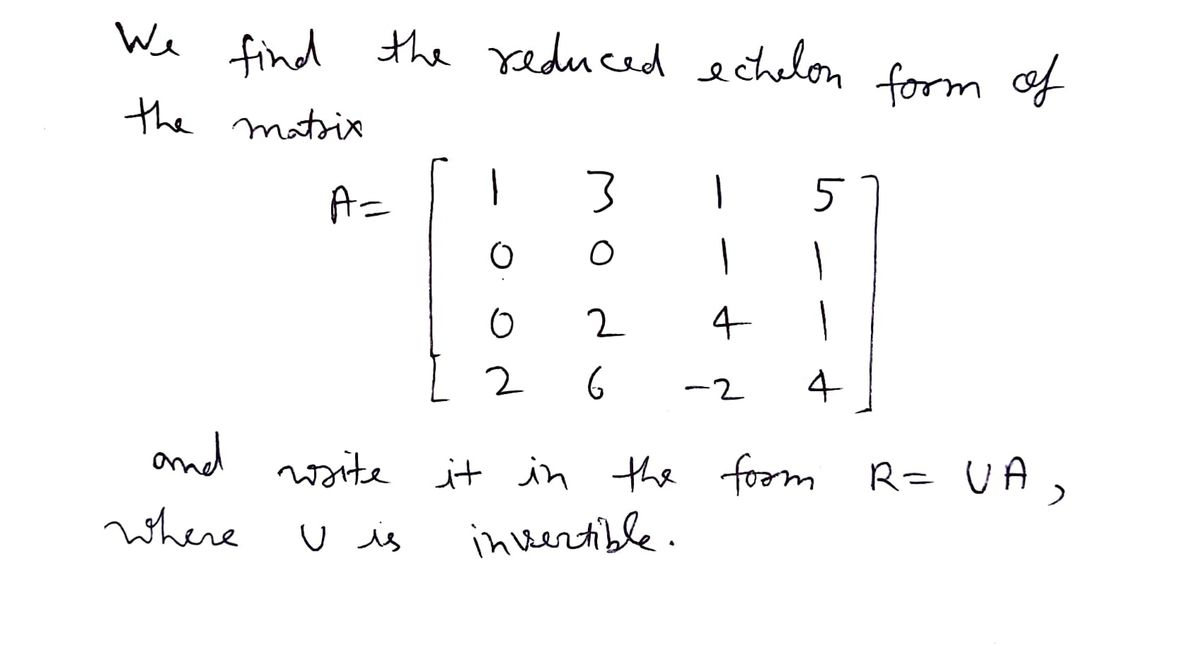 We find the reduced echelon form of
the matrix
A= [ 1 3 1 5
0 0 1 1
0 2 4 1
2 6 -2 4 ]
and write it in the form R= UA,
where U is invertible.